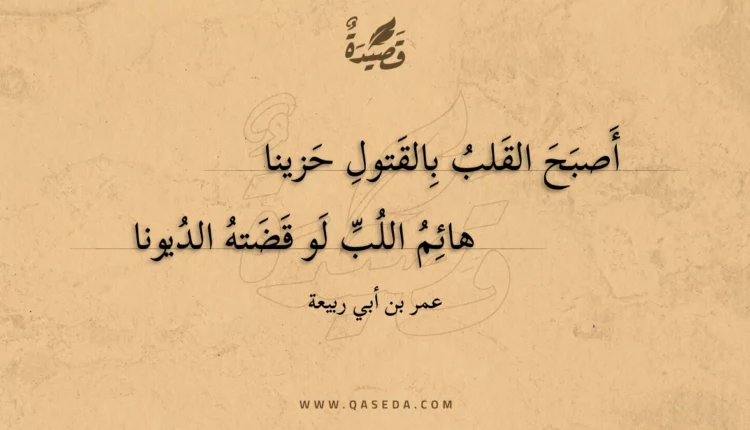 قَصِيدَةٌ
أَصبَحَ القَلبُ بِالقَتولِ حَزينا
هائِمُ اللُبِّ لَو قَضَتهُ الدُيونا
عمر بن أبي ربيعة
WWW.QASEDA.COM